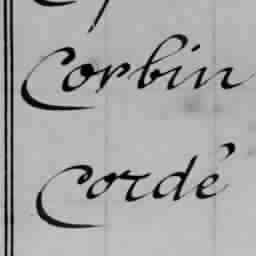 Corbin
Cordé